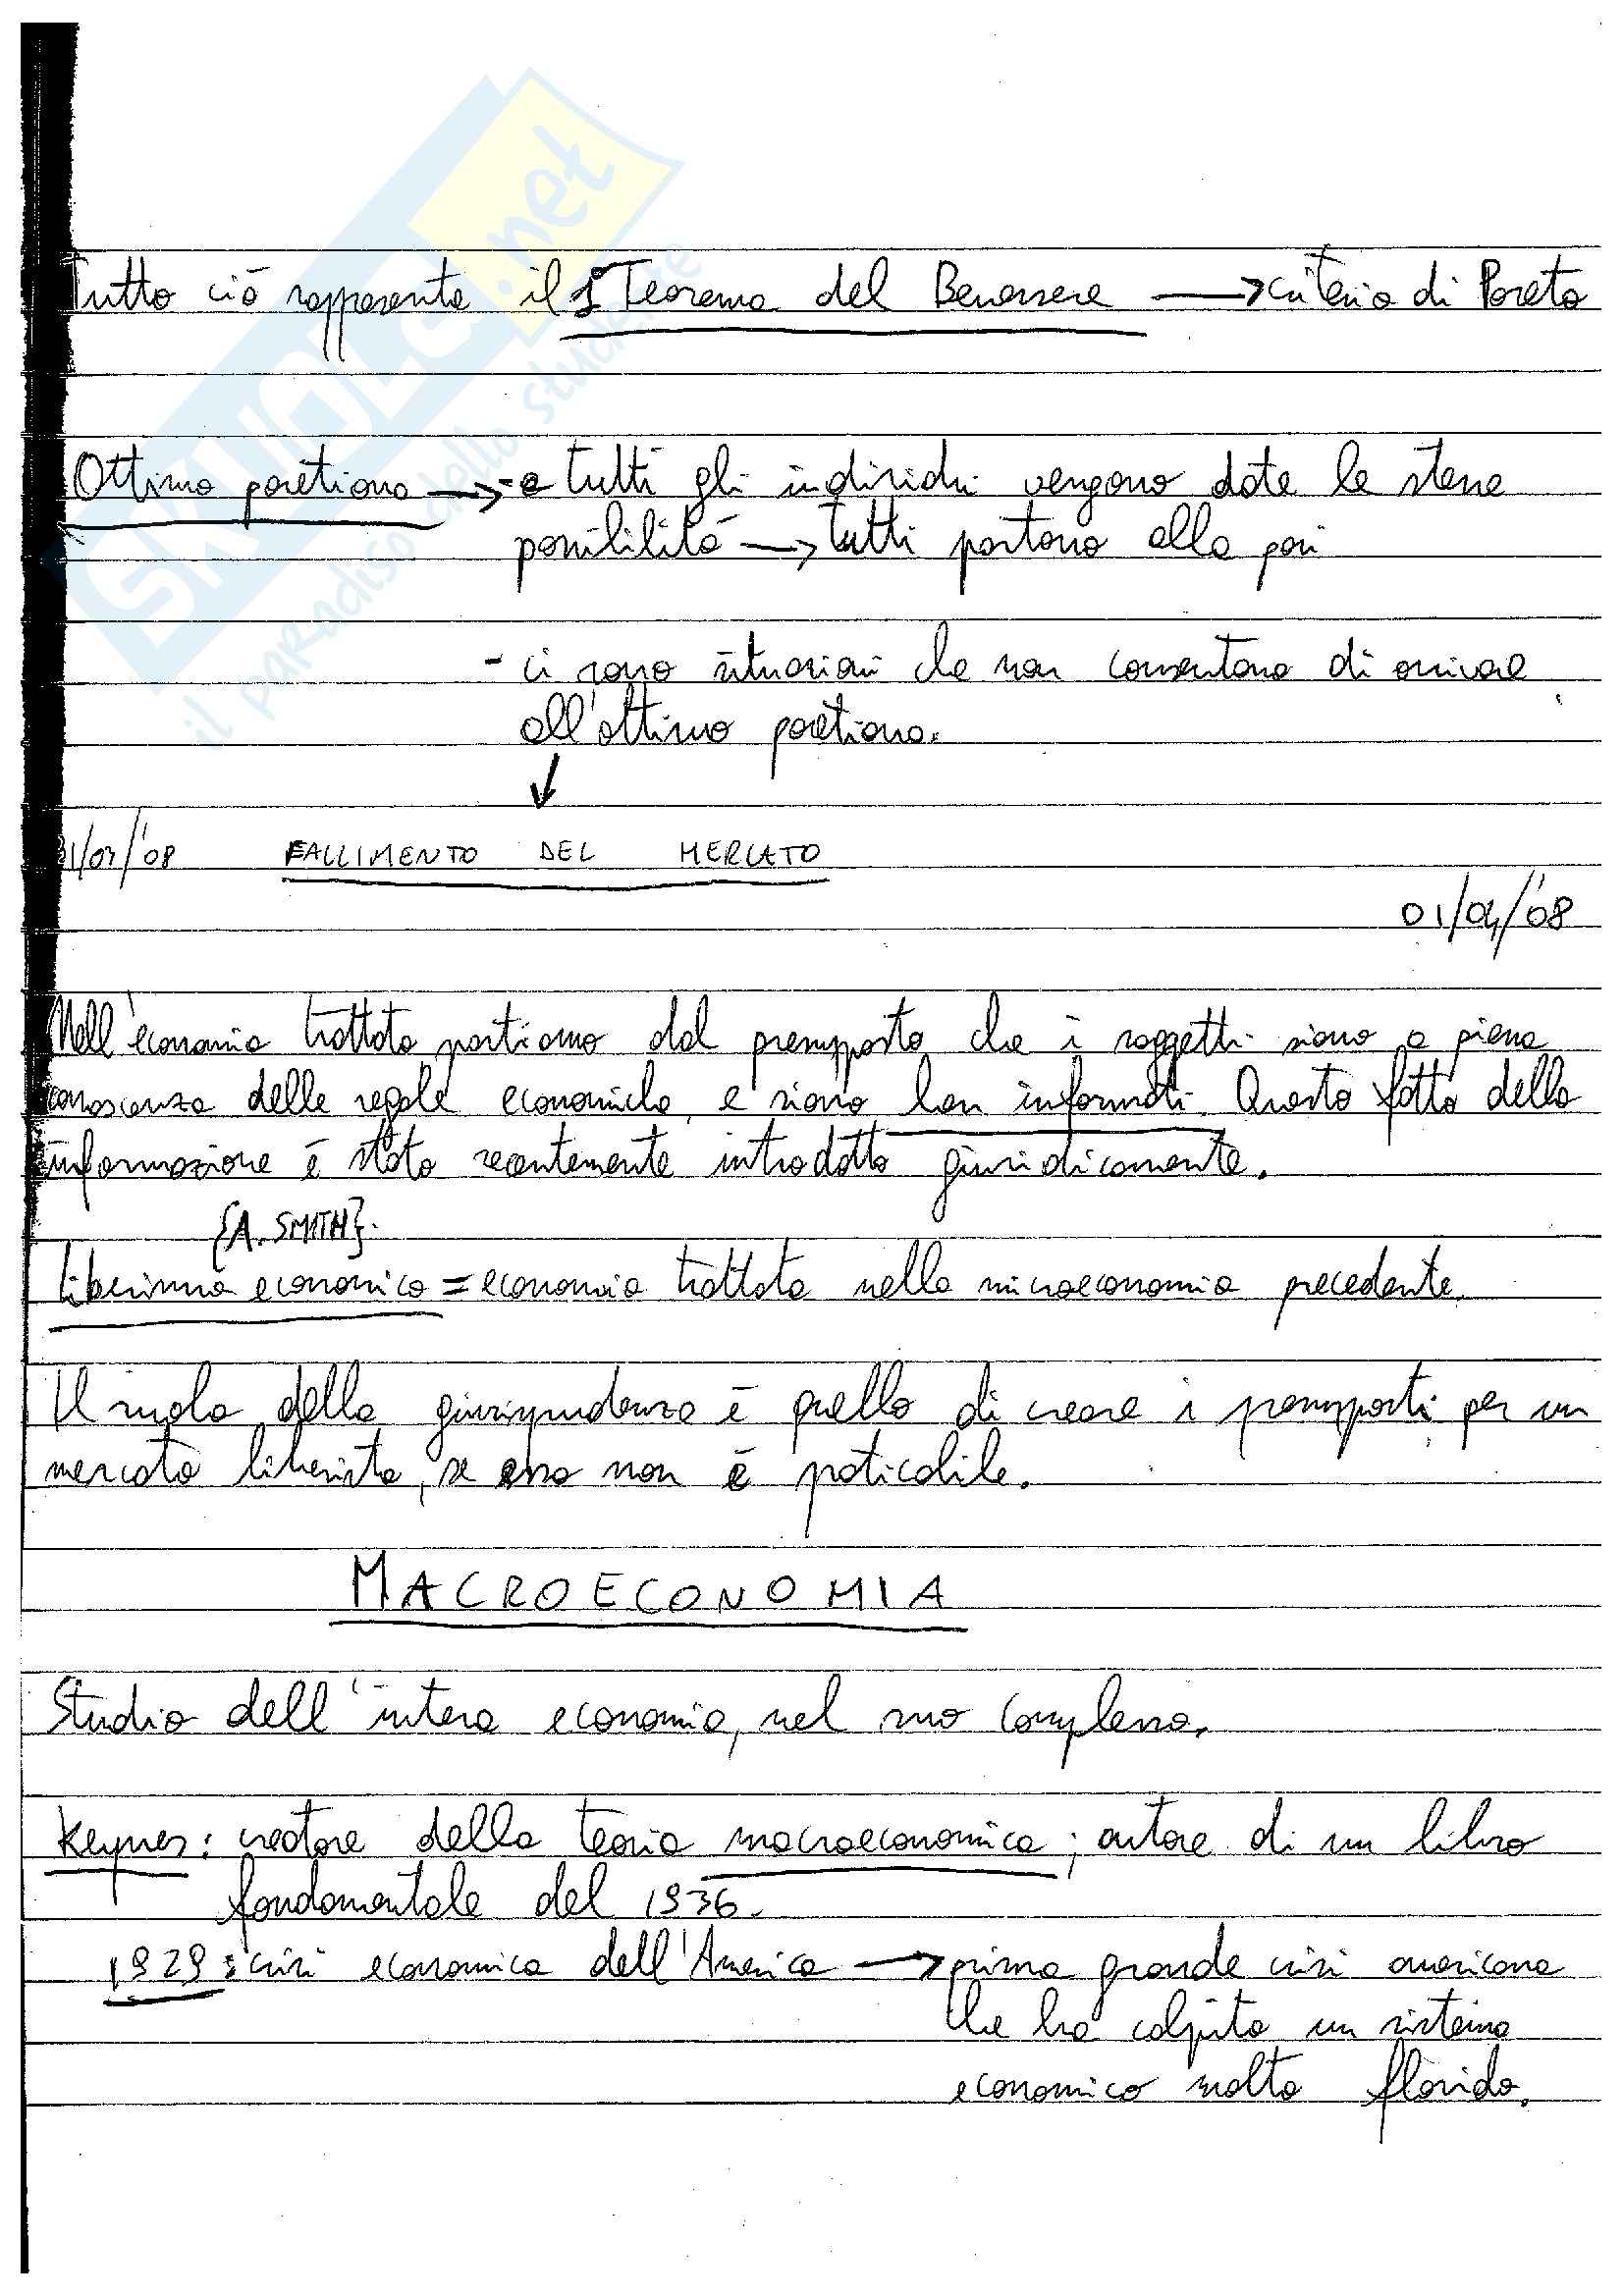 SKUOLA.net
il paradiso dello studente
Tutto ciò rappresenta il 1° Teorema del Benessere → criterio di Pareto
Ottimo paretiano → - a tutti gli individui vengono date le stesse
possibilità → tutti partono alla pari
- ci sono situazioni che non consentono di arrivare
all'ottimo paretiano.
↓
31/03/'08 FALLIMENTO DEL MERCATO
01/04/'08
Nell'economia trattata partiamo dal presupposto che i soggetti siano a piena
conoscenza delle regole economiche, e siano ben informati. Questo fatto della
informazione è stato recentemente introdotto giuridicamente.
{A. SMITH}.
liberismo economico = economia trattata nella microeconomia precedente.
Il ruolo della giurisprudenza è quello di creare i presupposti per un
mercato liberista, se esso non è praticabile.
MACROECONOMIA
Studio dell'intera economia, nel suo complesso.
Keynes: creatore della teoria macroeconomica; autore di un libro
fondamentale del 1936.
1929: crisi economica dell'America → prima grande crisi americana
che ha colpito un sistema
economico molto florido.